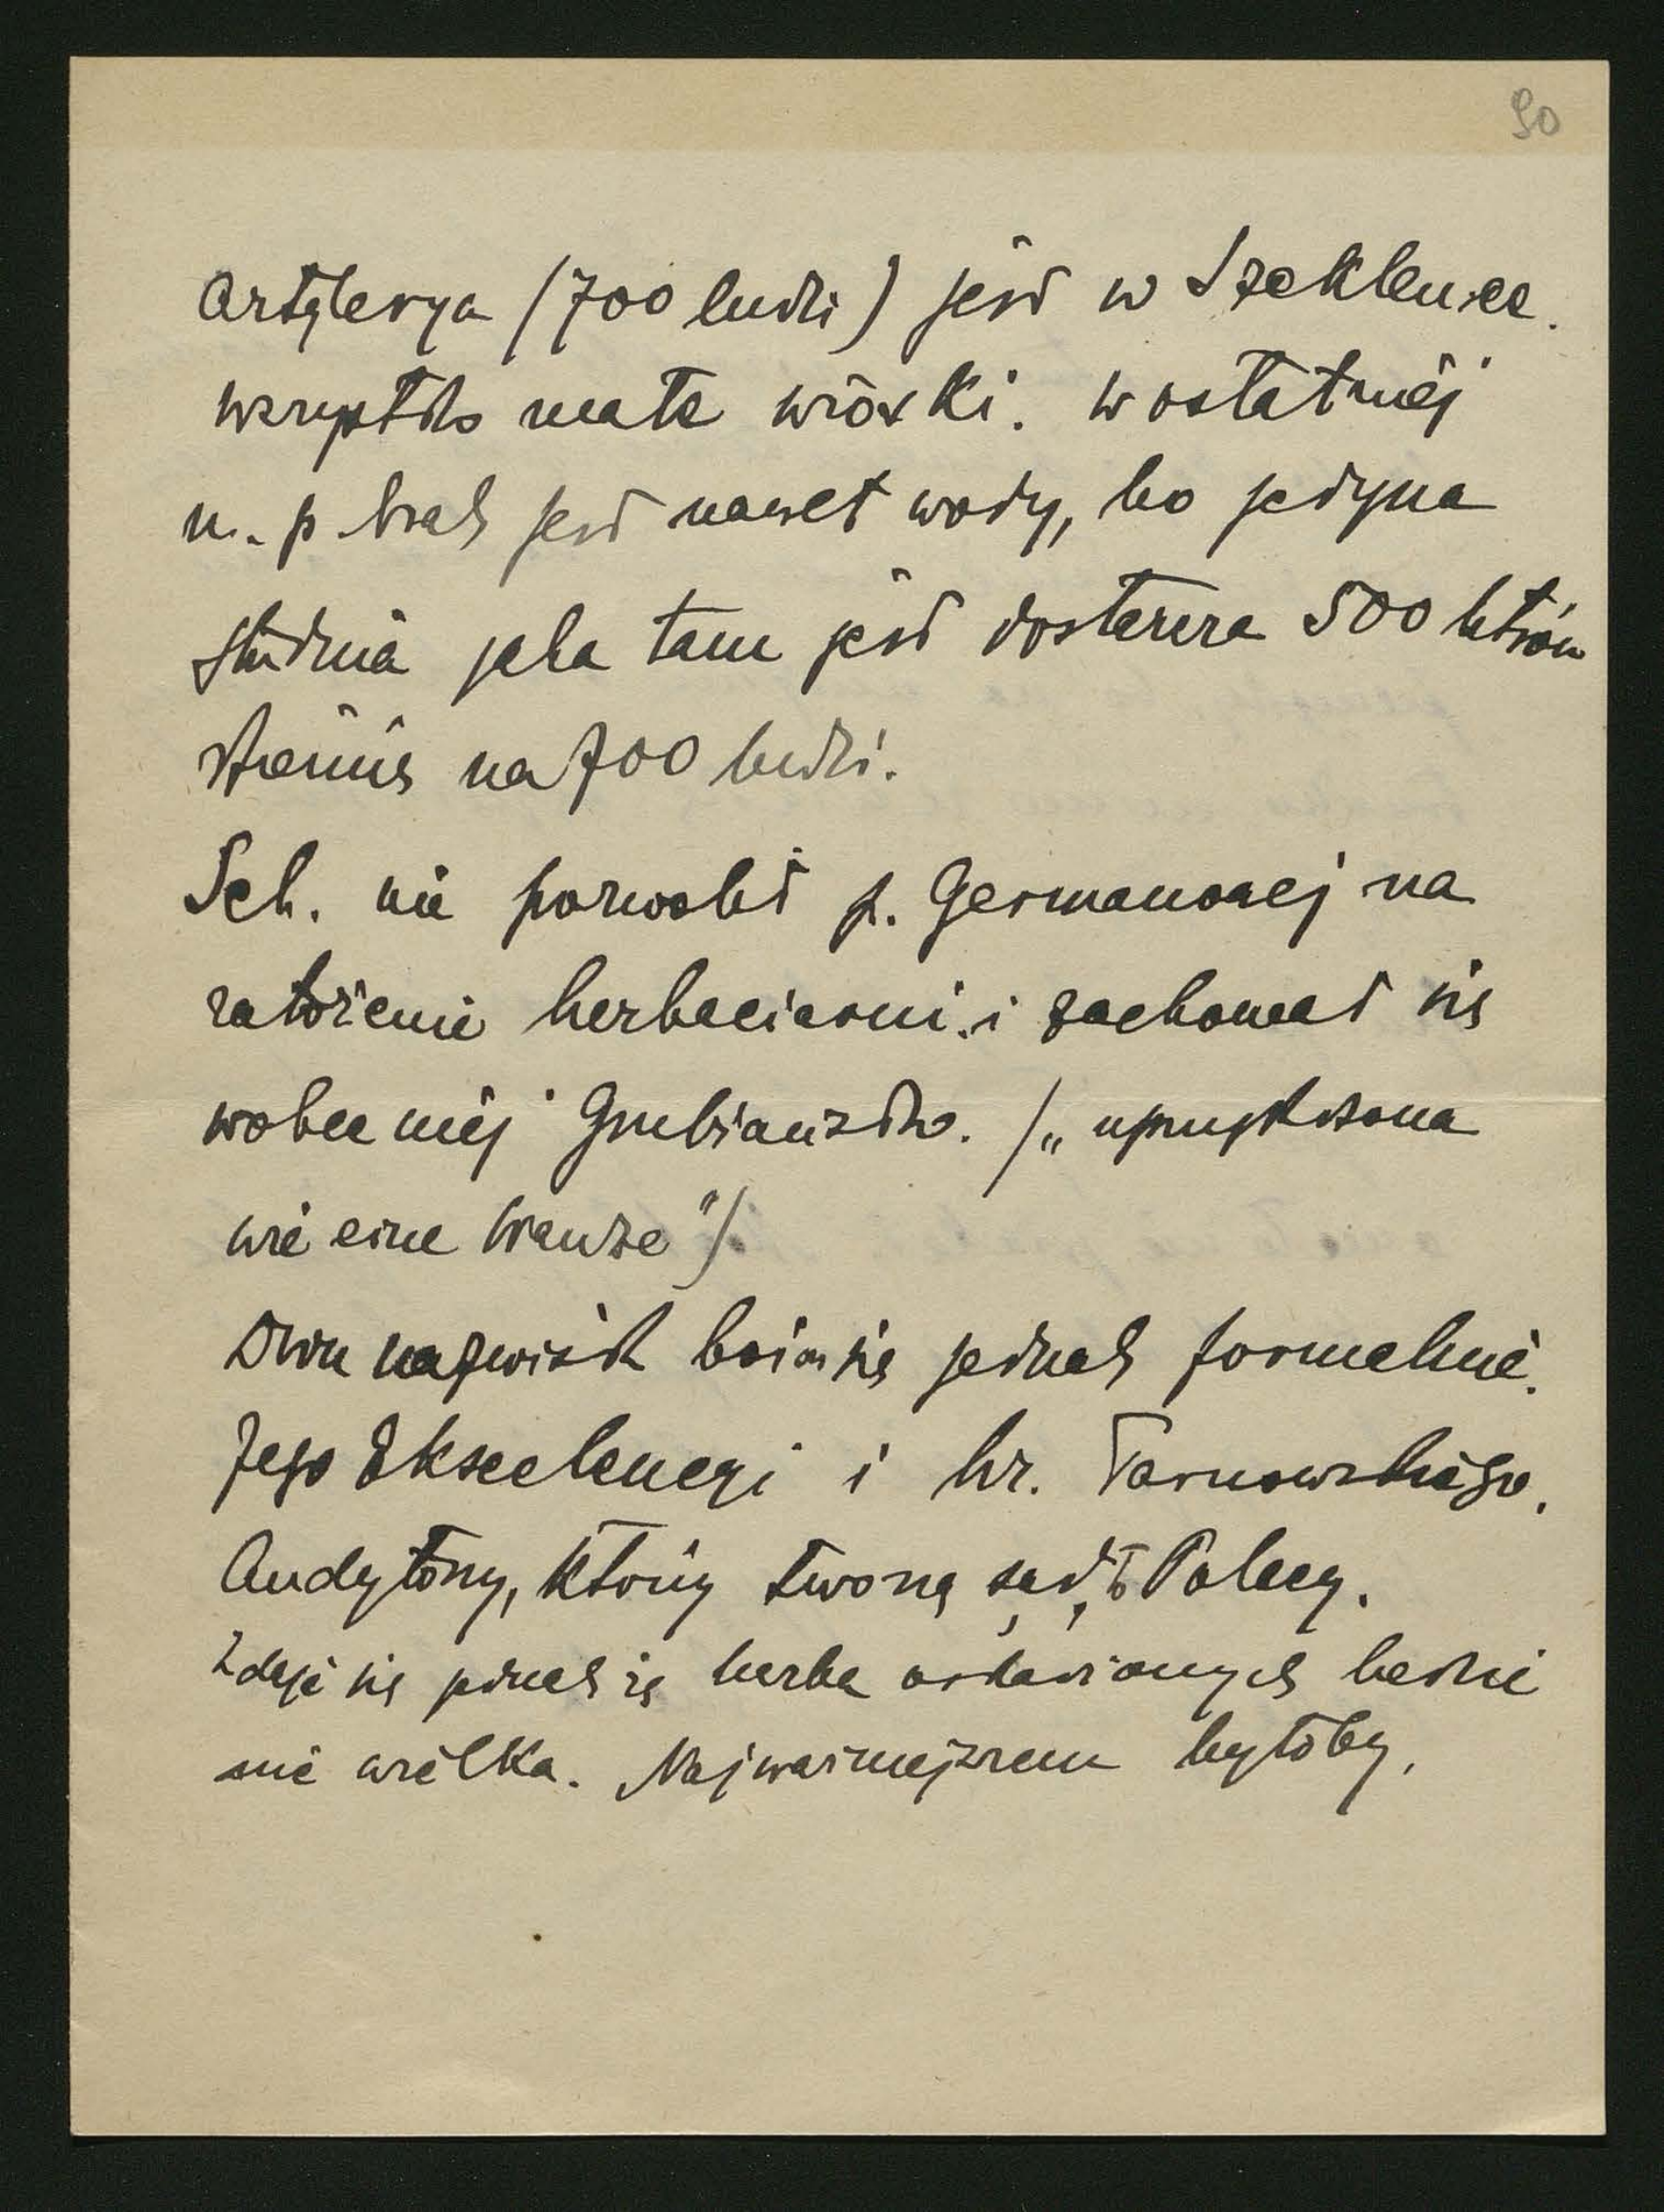 90
Artylerya (700 ludzi) jest w Szeklencze.
wszystko małe wioski. w ostatniej
n. p. brak jest nawet wody, bo jedyna
studnia jaka tam jest dostarcza 500 litrów
dziennie na 700 ludzi.
Sch. nie pozwolił p. Germanowej na
założenie herbaciarni i zachował się
wobec niej grubiańsko. („
wie eine Wanze")
Dwu nazwisk boją się jednak formalnie.
Jego Ekscelencyi i hr. Tarnowskiego.
Audytorzy, którzy tworzą sąd, to Polacy.
Zdaje się jednak że liczba oskarżonych będzie
nie wielka. Najważniejszem byłoby,